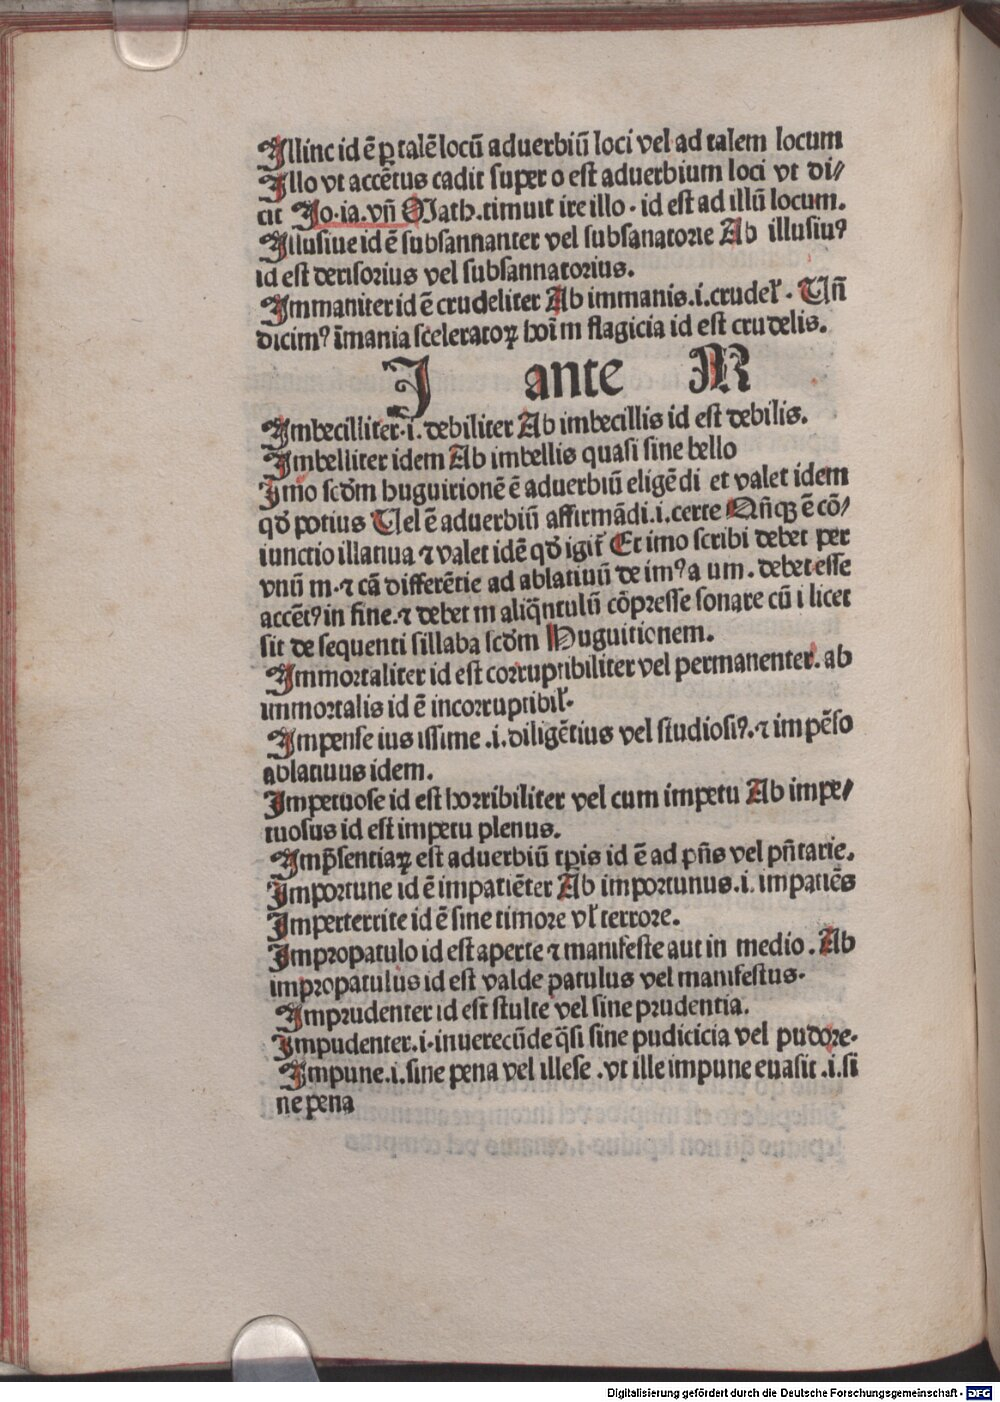 Illinc id ē ꝑ talē locū aduerbiū loci vel ad talem locum
Illo vt accētus cadit super o est aduerbium loci vt di⸗
cit Jo·ia.vn̄ Math.timuit ire illo · id est ad illū locum.
Illusiue id ē subsannanter vel subsanatorie Ab illusiuꝰ
id est derisorius vel subsannatorius.
Immaniter id ē crudeliter Ab immanis.i.crudel̕ · Vn̄
dicimꝰ īmania sceleratoꝝ hoīm flagicia id est crudelis.
I ante M
Imbecilliter·i.debiliter Ab imbecillis id est debilis.
Imbelliter idem Ab imbellis quasi sine bello
Imo scd̄m huguitionē ē aduerbiū eligēdi et valet idem
qd̄ potius Uel ē aduerbiū affirmādi.i.certe Qn̄qꝫ ē cō⸗
iunctio illatiua ⁊ valet idē qd̄ igit̕ Et imo scribi debet per
vnū m·⁊ cā differētie ad ablatiuū de imꝰ a um.debet esse
accētꝰ in fine.⁊ debet m aliq̄ntulū cōpresse sonare cū i licet
sit de sequenti sillaba scd̄m Huguitionem.
Immortaliter id est corruptibiliter vel permanenter.ab
immortalis id ē incorruptibil̕·
Impense ius issime .i.diligētius vel studiosiꝰ.⁊ impēso
ablatiuus idem.
Impetuose id est horribiliter vel cum impetu Ab impe⸗
tuosus id est impetu plenus.
Imp̄sentiaꝝ est aduerbiū tp̄is id ē ad pn̄s vel pn̄tarie.
Importune id ē impatiēter Ab importunus.i.impatiēs
Imperterrite id ē sine timore vl̕ terrore.
Impropatulo id est aperte ⁊ manifeste aut in medio . Ab
impropatulus id est valde patulus vel manifestus·
Imprudenter id est stulte vel sine prudentia.
Impudenter.i·inuerecūde q̄si sine pudicicia vel pudore·
Impune.i.sine pena vel illese .vt ille impune euasit .i.si
ne pena
Digitalisierung gefördert durch die Deutsche Forschungsgemeinschaft - DFG